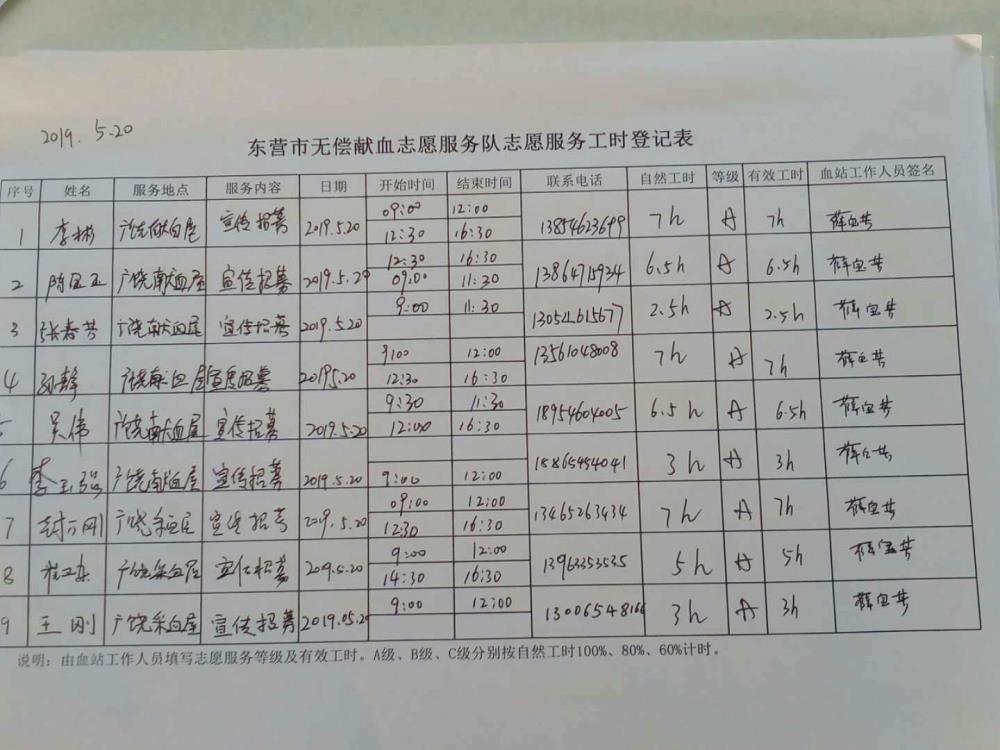 2019. 5.20
东营市无偿献血志愿服务队志愿服务工时登记表
序号 姓名 服务地点 服务内容 日期 开始时间 结束时间 联系电话 自然工时 等级 有效工时 血站工作人员签名
1 李彬 广饶献血屋 宣传招募 2019.5.20 09:00 12:00 13854623699 7h A 7h
12:30 16:30
2 广饶献血屋 宣传招募 2019.5.20 12:30 16:30 13864715934 6.5h A 6.5h
09:00 11:30
3 张春芳 广饶献血屋 宣传招募 2019.5.20 9:00 11:30 13054615677 2.5h A 2.5h
4 孙静 广饶献血屋 宣传招募 2019.5.20 9:00 12:00 13561048008 7h A 7h
12:30 16:30
5 吴伟 广饶献血屋 宣传招募 2019.5.20 9:30 11:30 18954604005 6.5h A 6.5h
12:00 16:30
6 李玉强 广饶献血屋 宣传招募 2019.5.20 9:00 12:00 18865454041 3h A 3h
7 封万刚 广饶采血屋 宣传招募 2019.5.20 09:00 12:00 13465263434 7h A 7h
12:30 16:30
8 崔卫东 广饶采血屋 宣传招募 2019.5.20 9:00 12:00 13963353535 5h A 5h
14:30 16:30
9 王刚 广饶采血屋 宣传招募 2019.05.20 9:00 12:00 13006548166 3h A 3h
说明：由血站工作人员填写志愿服务等级及有效工时。A级、B级、C级分别按自然工时100%、80%、60%计时。